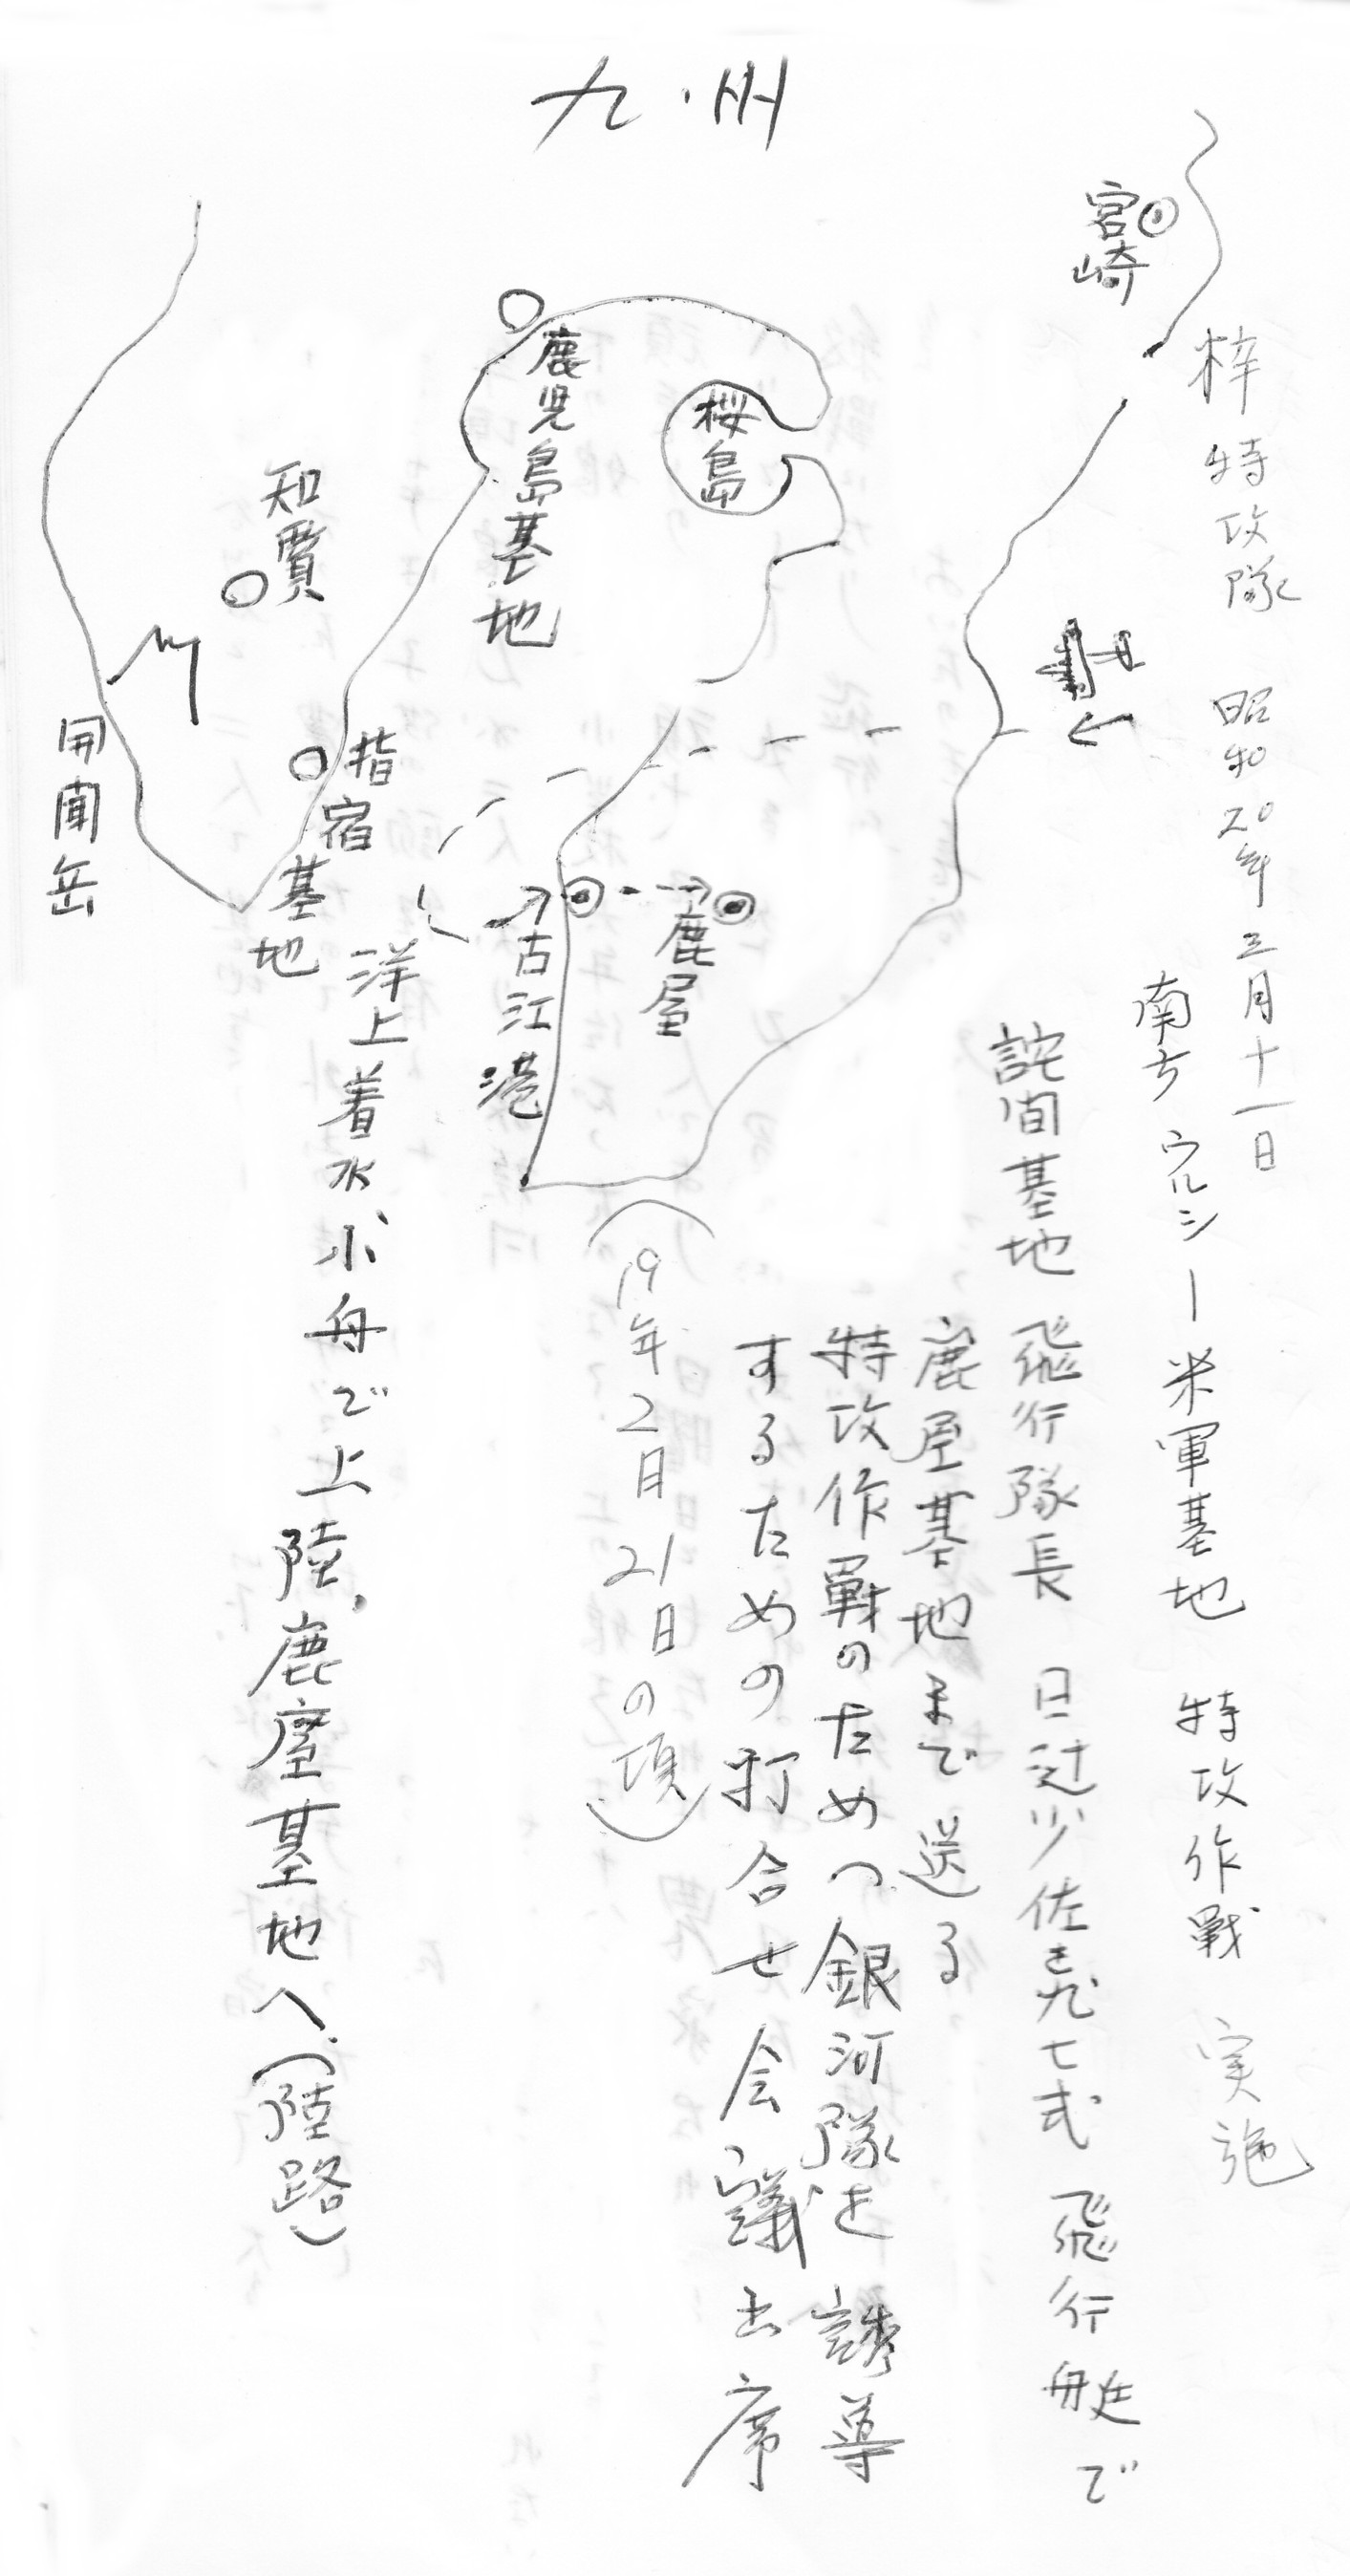 九州
宮崎
梓特攻隊 昭和20年三月十一日
南方 ウルシー米軍基地 特攻作戦 実施
詫間基地 飛行隊長 日辻少佐 九七式 飛行艇で
鹿屋基地まで送る
特攻作戦のためへ銀河隊を誘導
するための打合せ会議出席
(19年2月21日の頃)
桜島
鹿児島基地
知覧
開聞岳
指宿基地
古江港
鹿屋
洋上着水、小舟で上陸、鹿屋基地へ(陸路)